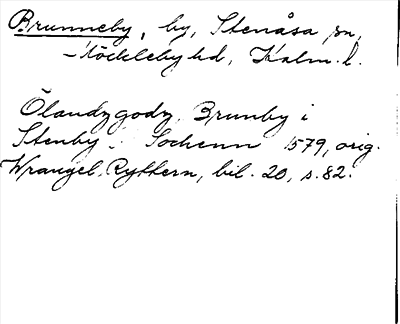 Brunneby, by, Stenåsa sn,
Möckleby hd, Kalm. l.
Ölandzgodz, Brunby i
Stenby Sochenn 1579, orig.
Wrangel, Ryttern, bil. 20, s. 82.